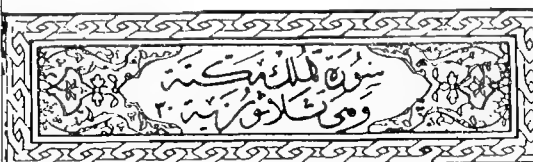 سورة الملك مكية
وهي ثلاثون آية ٣٠